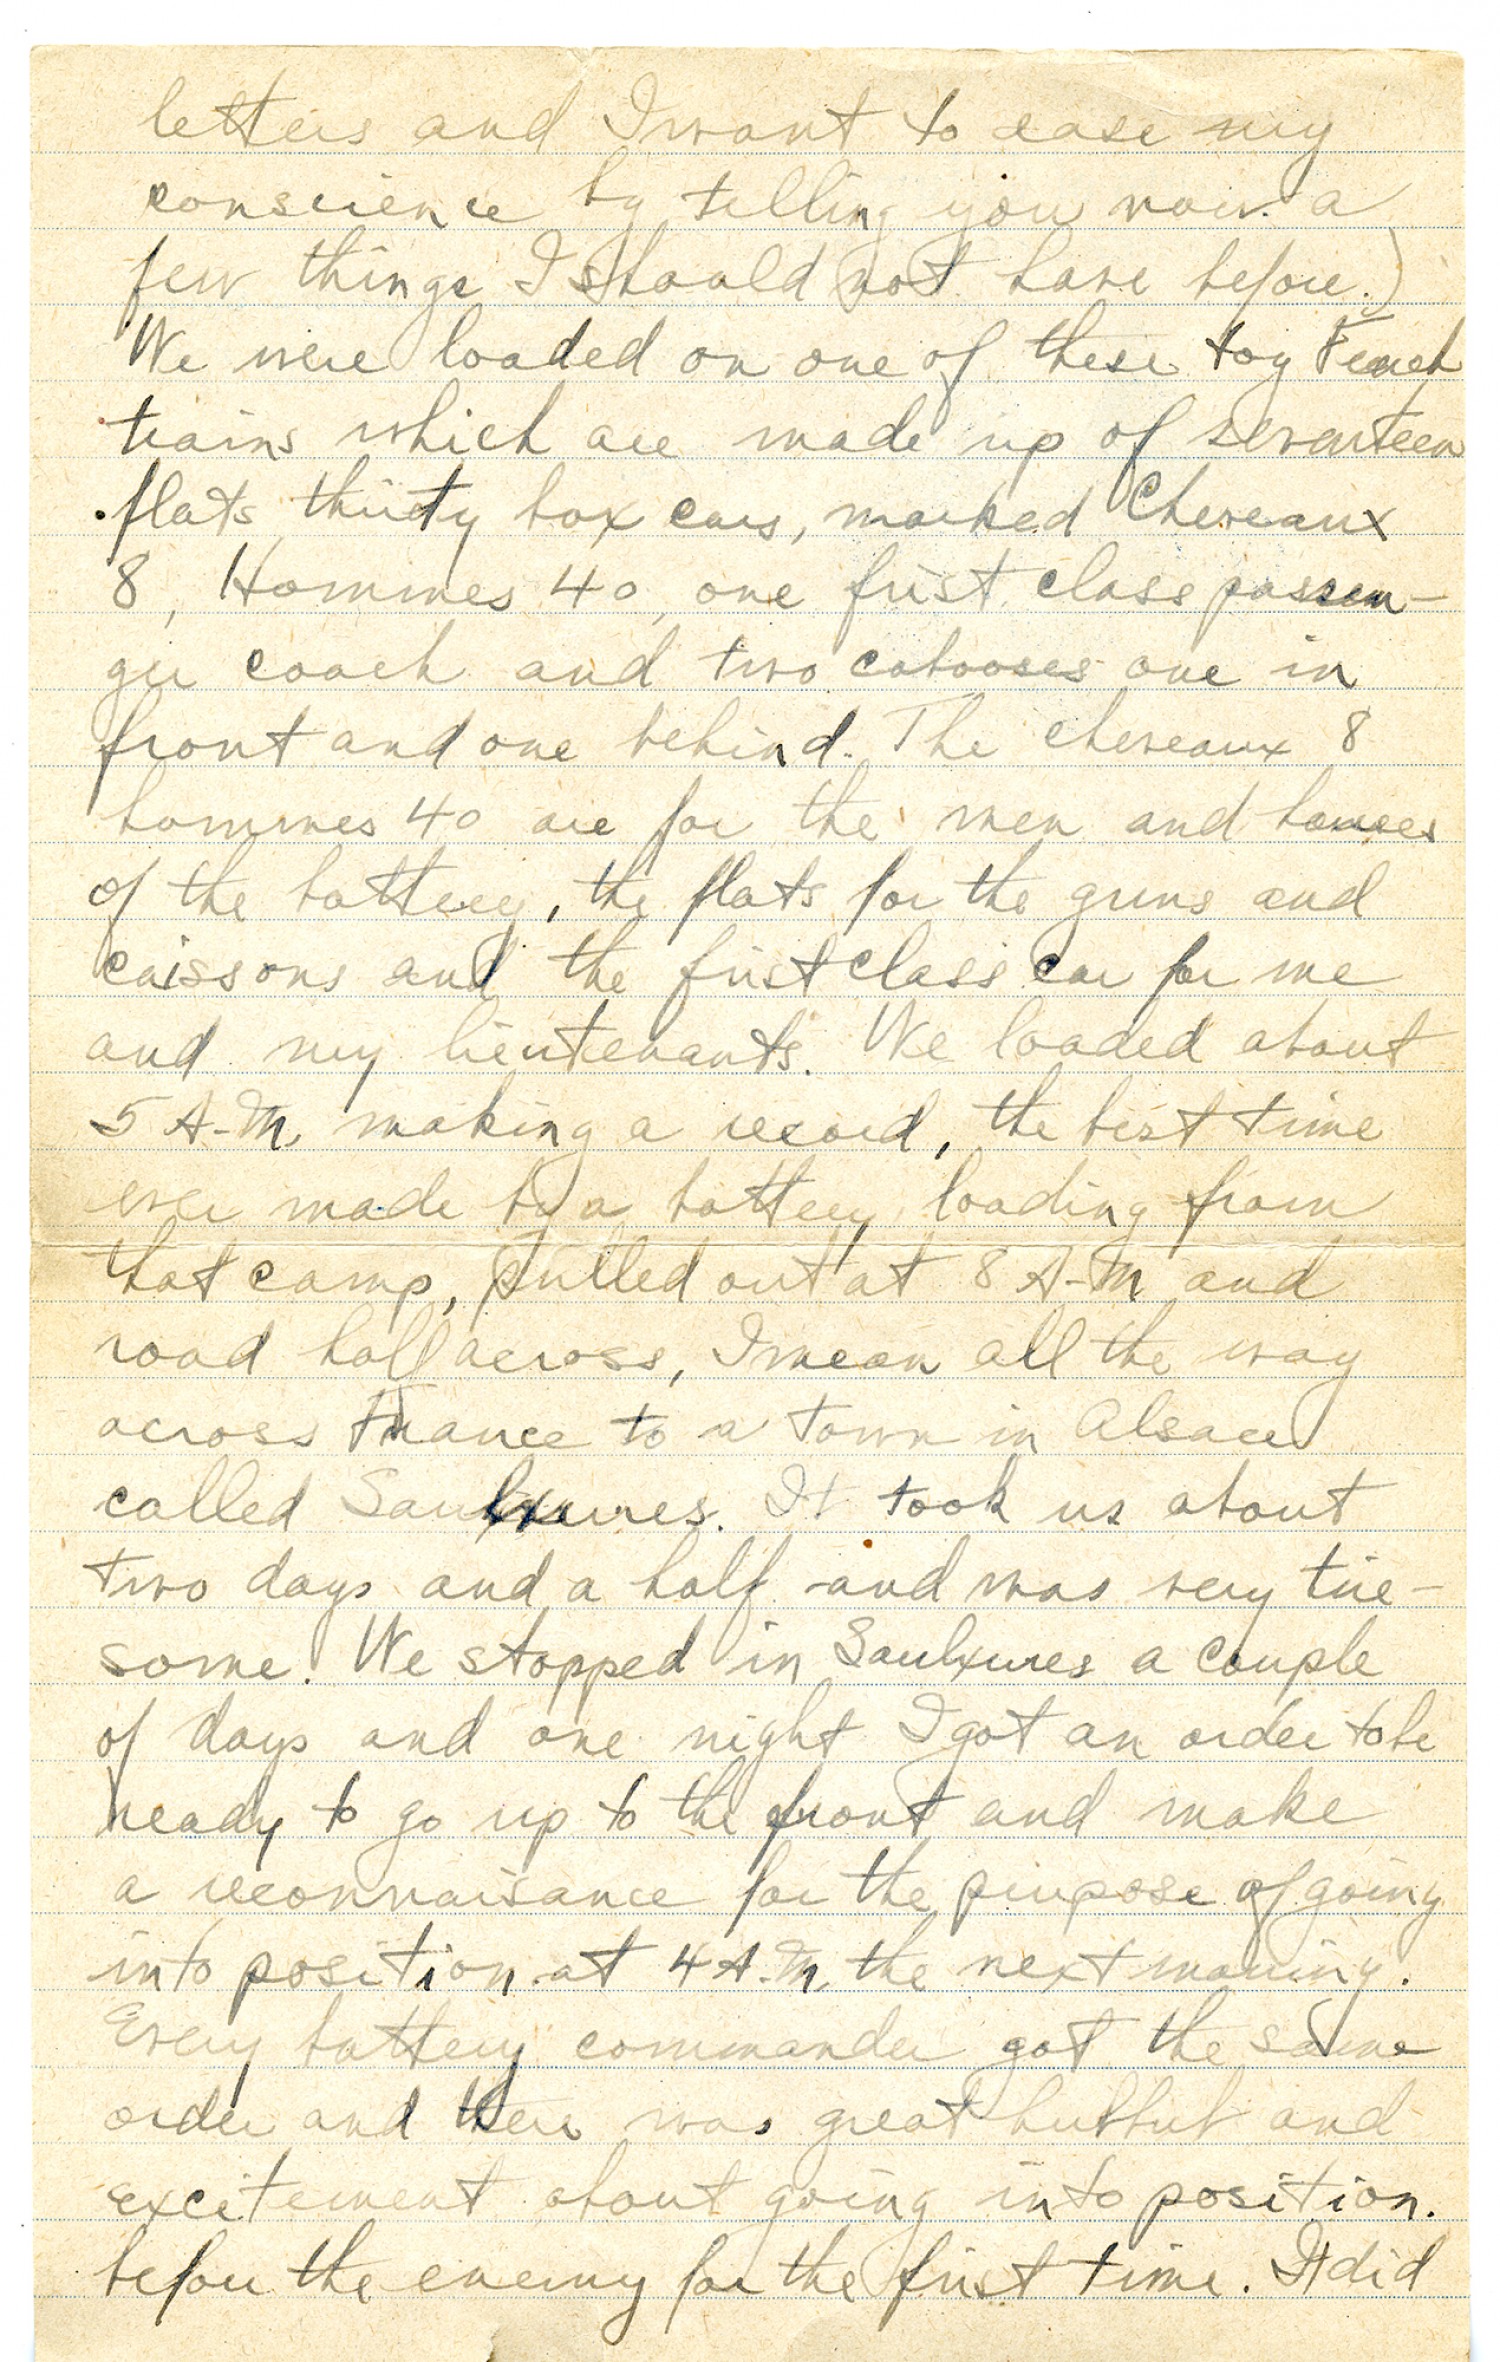 letters and I want to ease my
conscience by telling you now a
few things I should not have before.)
We were loaded on one of these toy French
trains which are made up of seventeen
flats thirty box cars, marked Cheveaux
8, Hommes 40, one first class passen-
ger coach and two cabooses one in
front and one behind. The cheveaux 8
hommes 40 are for the men and horses
of the battery, the flats for the guns and
caissons and the first class car for me
and my lieutenants. We loaded about
5 A-M making a record, the best time
ever made by a battery loading from
that camp, pulled out at 8 A-M and
road half across, I mean all the way
across France to a town in Alsace
called Saulxures. It took us about
two days and a half and was very tire-
some. We stopped in Saulxures a couple
of days and one night I got an order to be
ready to go up to the front and make
a reconnaisance for the purpose of going
into position at 4 A-M the next morning.
Every battery commander got the same
order and there was great hubbub and
excitement about going into position.
before the enemy for the first time. It did